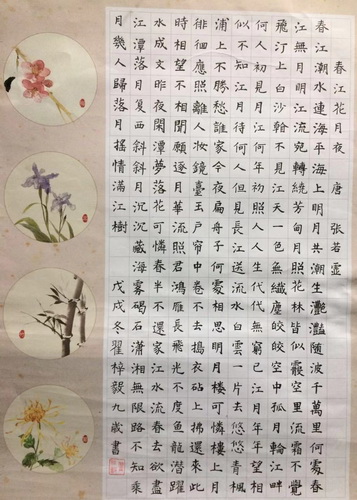 春江花月夜 唐 張若虛
春江潮水連海平海上明月共潮生灧灧隨波千萬里何處春
江無月明江流宛轉繞芳甸月照花林皆似霰空里流霜不覺
飛汀上白沙看不見江天一色無纖塵皎皎空中孤月輪江畔
何人初見月江何年初照人人生代代無窮已江月年年望相
似不知江月待何人但見長江送流水白雲一片去悠悠青楓
浦上不勝愁誰家今夜扁舟子何處相思明月樓可憐樓上月
徘徊應照離人妝鏡臺玉戶帘中卷不去搗衣砧上拂還來此
時相望不相聞願逐月華流照君鴻雁長飛光不度魚龍潛躍
水成文昨夜閑潭夢落花可憐春半不還家江水流春去欲盡
江潭落月復西斜斜月沉沉藏海霧碣石瀟湘無限路不知乘
月幾人歸落月搖情滿江樹 戊戌冬翟梓毅九歲書